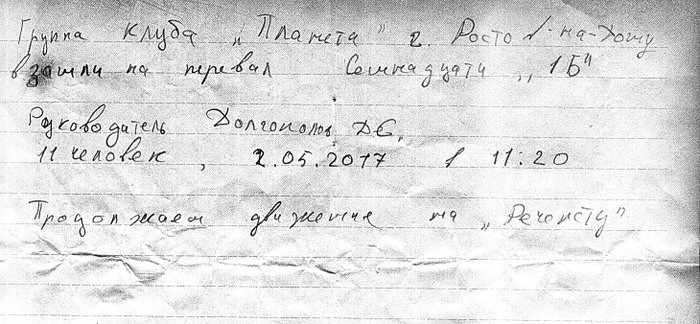 Группа клуба „Планета" г. Ростов-на-Дону
взошли на перевал Семнадцати „1Б"
Руководитель Долгополов Д.С.
11 человек, 2.05.2017 в 11:20
Продолжаем движение на